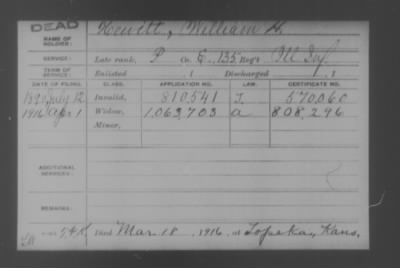 DEAD
NAME OF SOLDIER: Hewitt, William H.
SERVICE: Late rank, P Co. G, 135 Reg't Ill Inf.
TERM OF SERVICE: Enlisted , 1 Discharged , 1
DATE OF FILING. CLASS. APPLICATION NO. LAW. CERTIFICATE NO.
1890 July 12 Invalid, 810,541 J. 570,060
1916 Apr 1 Widow, 1,063,703 a 808,296
Minor,
ADDITIONAL SERVICES:
REMARKS:
Died Mar 18, 1916, at Topeka, Kans.